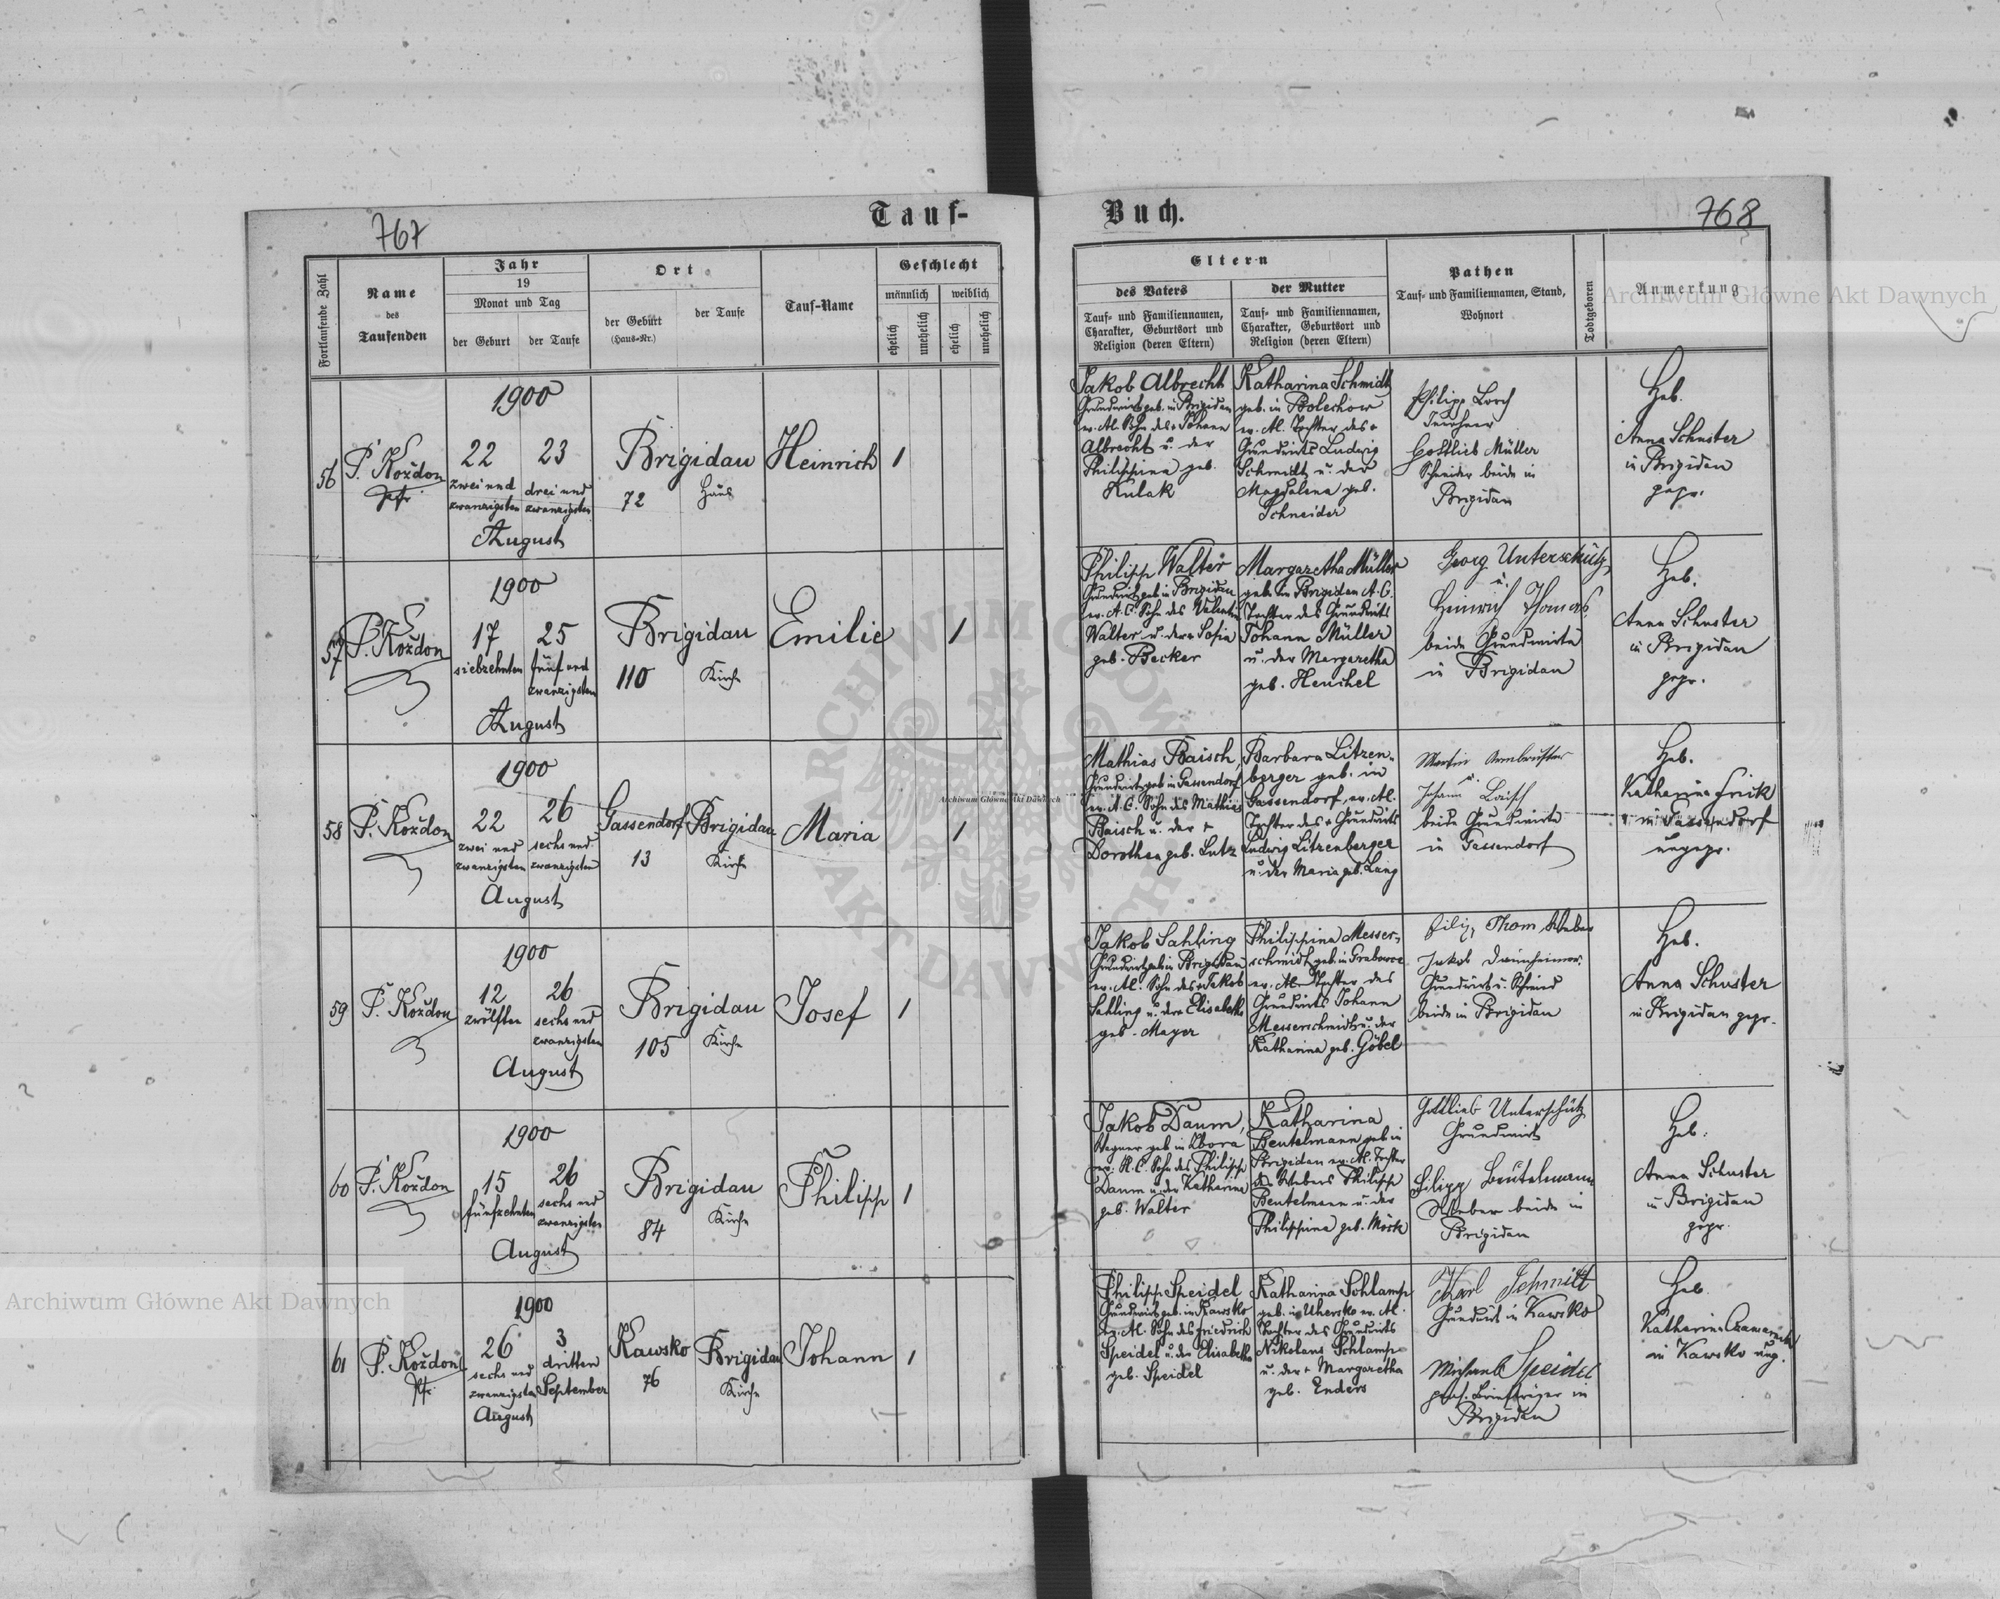 767
Tauf-
Buch.
768
Fortlaufende Zahl
Name
des
Taufenden
Jahr
19
Monat und Tag
der Geburt
der Taufe
Ort
der Geburt
(Haus-Nr.)
der Taufe
Tauf-Name
Geschlecht
männlich
weiblich
ehelich
unehelich
ehelich
unehelich
Eltern
des Vaters
Tauf- und Familiennamen,
Charakter, Geburtsort und
Religion (deren Eltern)
der Mutter
Tauf- und Familiennamen,
Charakter, Geburtsort und
Religion (deren Eltern)
Pathen
Tauf- und Familiennamen, Stand,
Wohnort
Todtgeboren
Anmerkung
56
P. Koždon
Pfr.
1900
22
zwei und
zwanzigsten
23
drei und
zwanzigsten
August
Brigidau
72
Haus
Heinrich
1
Jakob Albrecht
Grundwirt geb. in Brigidau
ev. A.C. Sohn des + Johann
Albrecht u. der
Philippina geb.
Kulak
Katharina Schmidt
geb. in Bolechow
ev. A.C. Tochter des +
Grundwirts Ludwig
Schmidt u. der
Magdalena geb.
Schneider
Philipp Lorch
Gottlieb Müller
Schneider beide in
Brigidau
Heb.
Anna Schuster
in Brigidau
gepr.
57
P. Koždon
1900
17
siebzehnten
25
fünf und
zwanzigsten
August
Brigidau
110
Kirche
Emilie
1
Philipp Walter
Grundwirt geb. in Brigidau
ev. A.C. Sohn des Valentin
Walter u. der + Sofia
geb. Becker
Margaretha Müller
geb. in Brigidau A.C.
Tochter des Grundwirts
Johann Müller
u. der Margaretha
geb. Henchel
Georg Unterschütz
u.
Heinrich Thomas
beide Grundwirte
in Brigidau
Heb.
Anna Schuster
in Brigidau
gepr.
58
P. Koždon
1900
22
zwei und
zwanzigsten
26
sechs und
zwanzigsten
August
Gassendorf
13
Brigidau
Kirche
Maria
1
Mathias Baisch,
Grundwirt geb. in Gassendorf
ev. A.C. Sohn des Mathias
Baisch u. der +
Dorothea geb. Lutz
Barbara Litzen-
berger geb. in
Gassendorf, ev. A.C.
Tochter des + Grundwirts
Ludwig Litzenberger
u. der Maria geb. Lang
Martin Armbruster
u.
Johann Baisch
beide Grundwirte
in Gassendorf
Heb.
Katharina Frick
in Gassendorf
ungepr.
59
P. Koždon
1900
12
zwölften
26
sechs und
zwanzigsten
August
Brigidau
105
Kirche
Josef
1
Jakob Sahling
Grundwirt geb. in Brigidau
ev. A.C. Sohn des + Jakob
Sahling u. der Elisabeth
geb. Mayer
Philippina Messer-
schmidt geb. in Grabowce
ev. A.C. Tochter des
Grundwirts Johann
Messerschmidt u. der
Katharina geb. Göbel
Filip Thom Weber
Jakob
Grundwirt u. Schmied
beide in Brigidau
Heb.
Anna Schuster
in Brigidau gepr.
60
P. Koždon
1900
15
fünfzehnten
26
sechs und
zwanzigsten
August
Brigidau
84
Kirche
Philipp
1
Jakob Daum,
Wagner geb. in Ugora
ev. A.C. Sohn des Philipp
Daum u. der Katharina
geb. Walter
Katharina
Beutelmann geb. in
Brigidau ev. A.C. Tochter
des Webers Philipp
Beutelmann u. der
Philippina geb. Möck
Gottlieb Unterschütz
Grundwirt
Filipp Beutelmann
Weber beide in
Brigidau
Heb.
Anna Schuster
in Brigidau
gepr.
61
P. Koždon
Pfr.
1900
26
sechs und
zwanzigsten
August
3
dritten
September
Kawsko
76
Brigidau
Kirche
Johann
1
Philipp Speidel
Grundwirt geb. in Kawsko
ev. A.C. Sohn des Friedrich
Speidel u. der Elisabetha
geb. Speidel
Katharina Schlamp
geb. in Uhersko ev. A.C.
Tochter des Grundwirts
Nikolaus Schlamp
u. der + Margaretha
geb. Enders
Karl Schmidt
Grundwirt in Kawsko
Michael Speidel
Briefträger in
Brigidau
Heb.
Katharina
in Kawsko ung.
Archiwum Główne Akt Dawnych
Archiwum Główne Akt Dawnych
Archiwum Główne Akt Dawnych
ARCHIWUM GŁÓWNE
AKT DAWNYCH